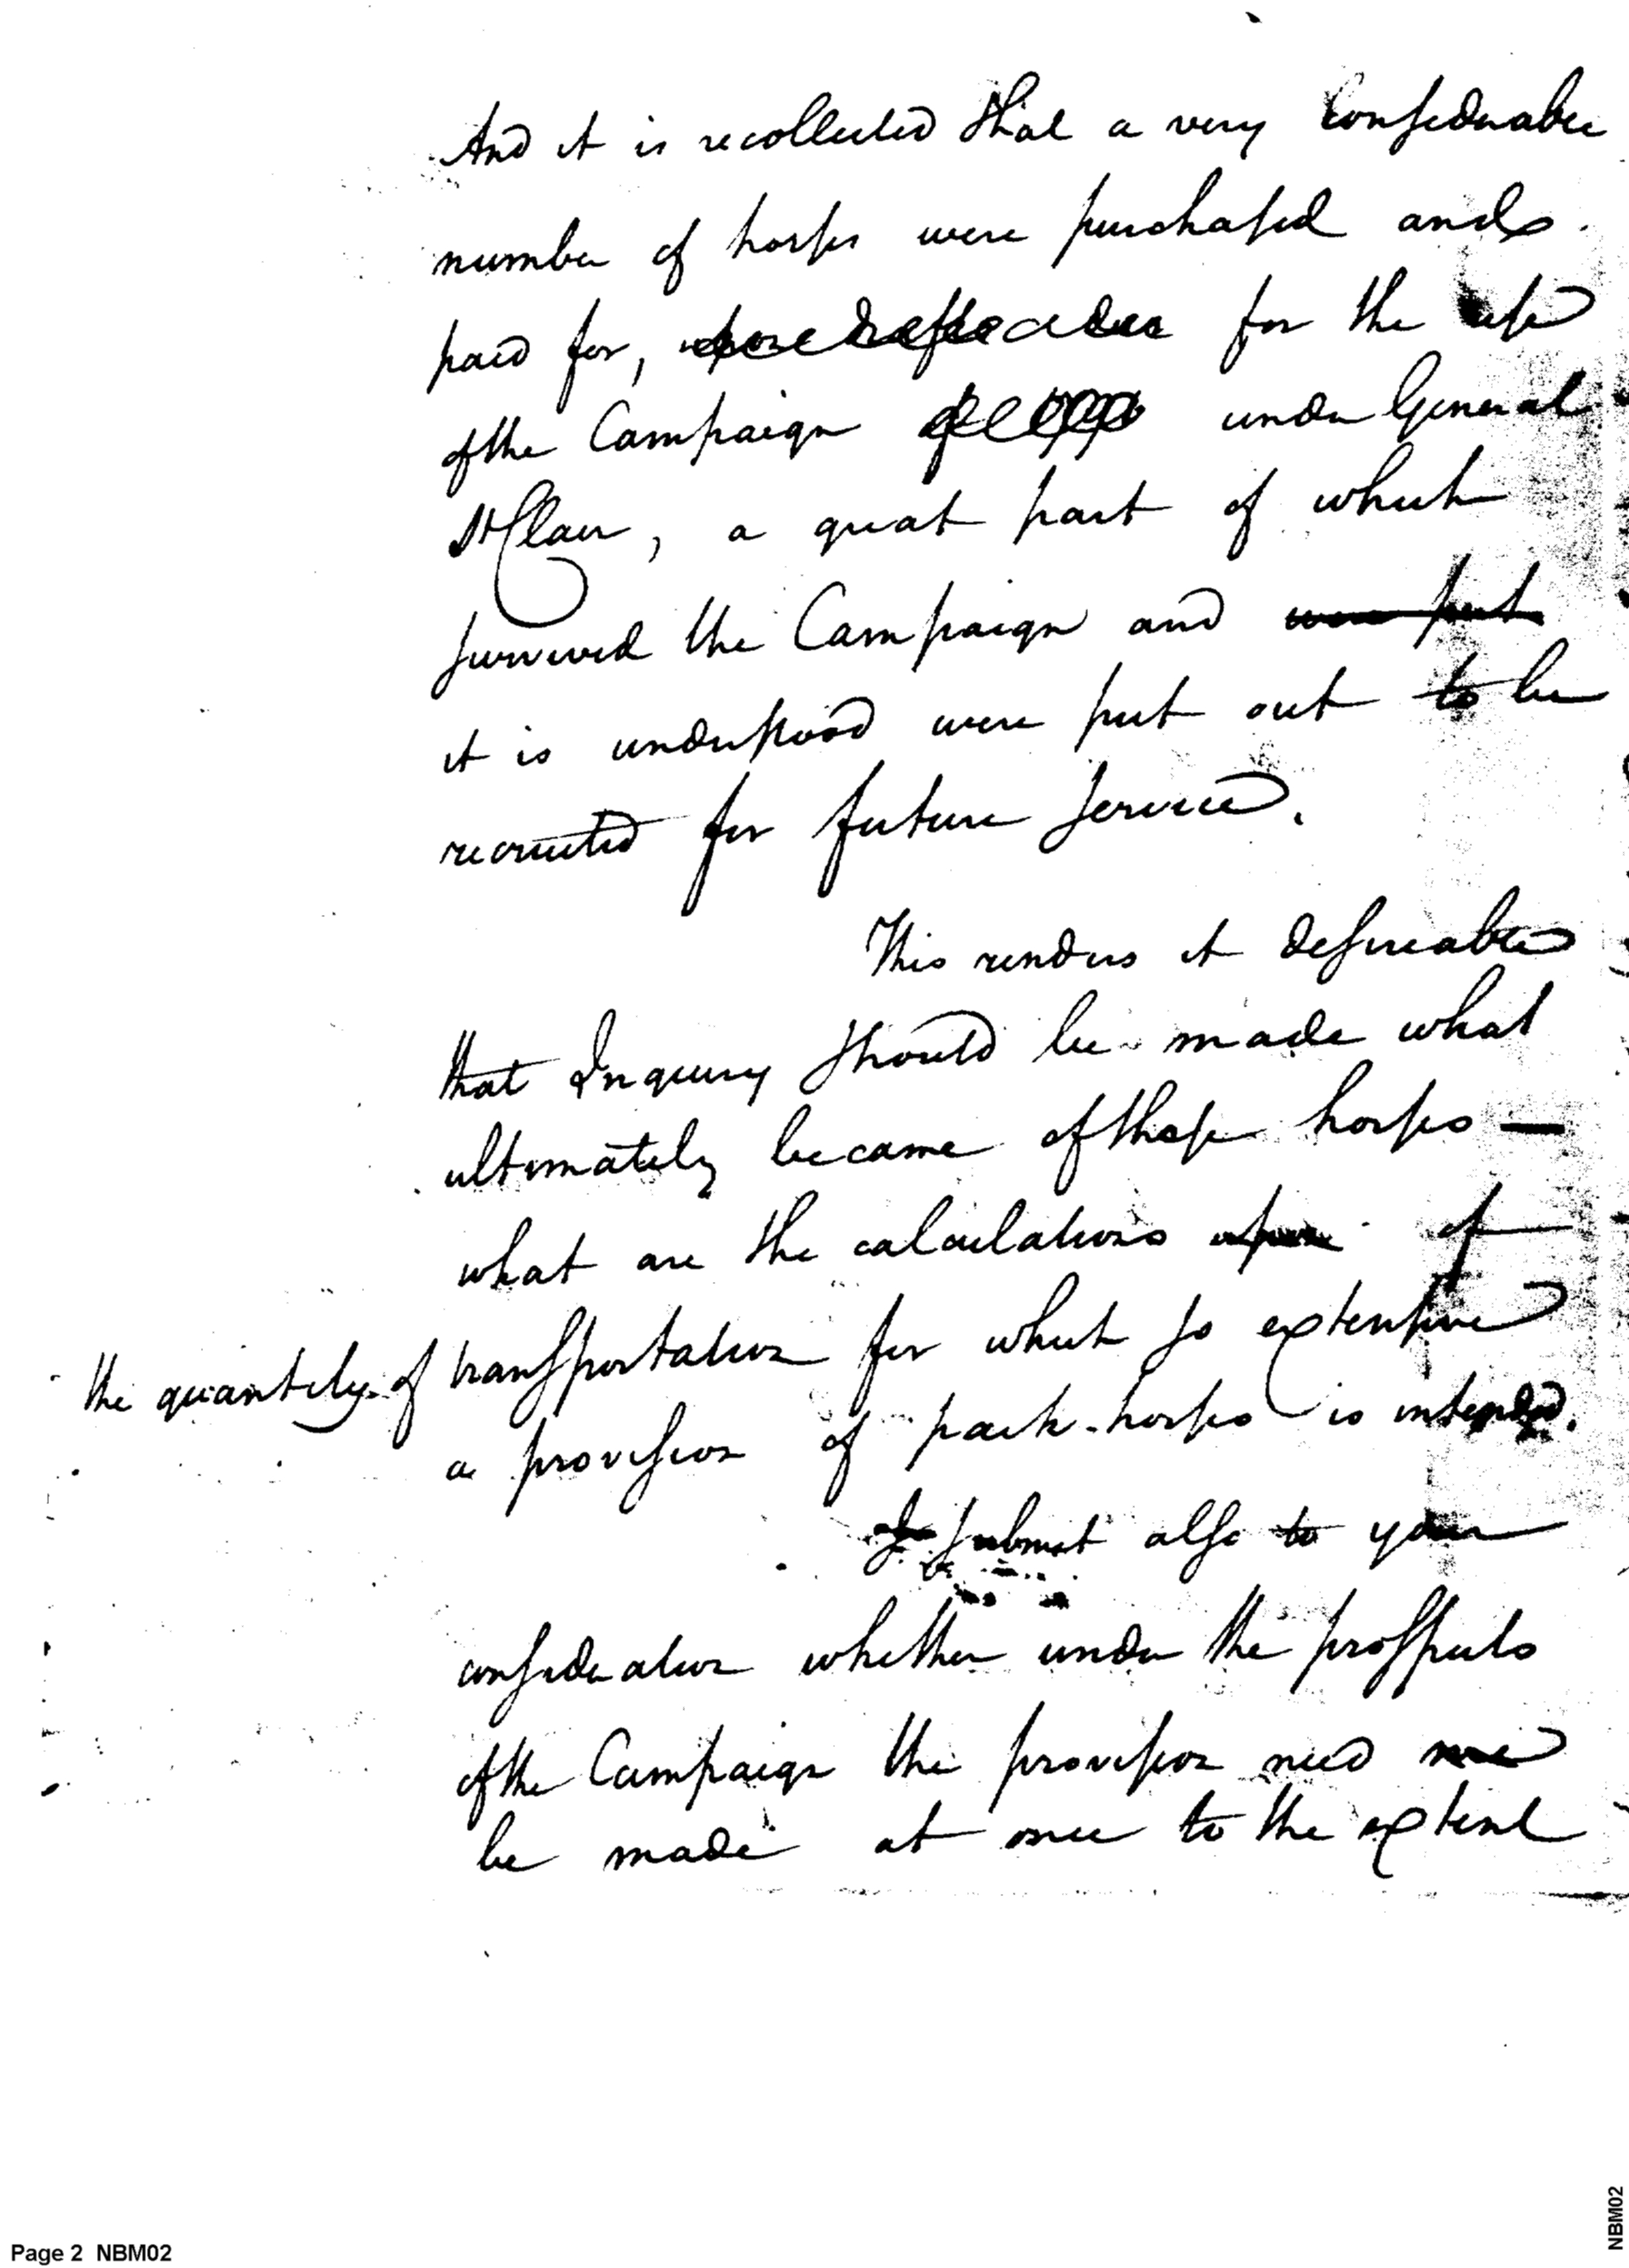 And it is recollected that a very considerable
number of horses were purchased and
paid for, for the use
of the Campaign under General
St Clair, a great part of which
survived the Campaign and were put
it is understood were put out to be
recruited for future service.
This renders it desireable
that Inquiry should be made what
ultimately became of those horses —
what are the calculations upon of
the quantity of transportation for which so extensive
a provision of pack-horses is intended.
I submit also to your
consideration whether under the prospects
of the Campaign the provision need
be made at once to the extent
Page 2 NBM02
NBM02